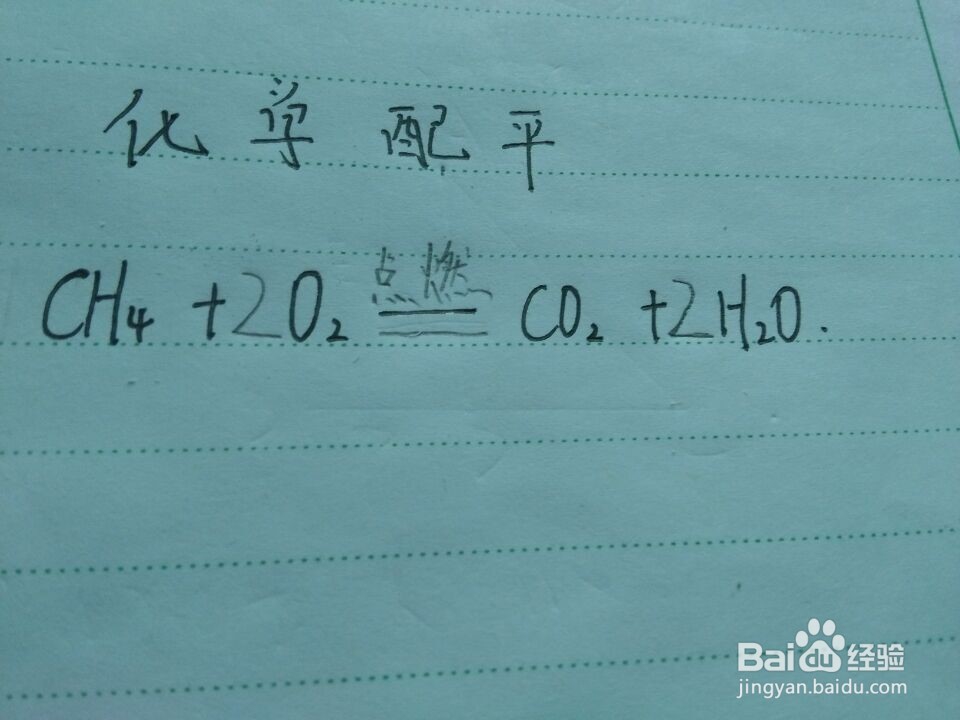 化学配平
点燃
CH₄ + 2O₂ == CO₂ + 2H₂O.
Baidu经验
jingyan.baidu.com